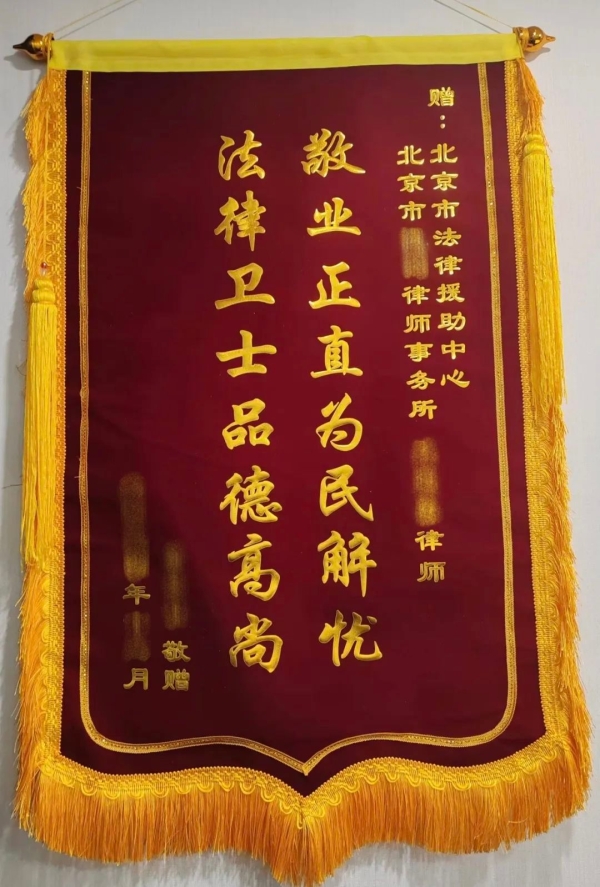 赠：北京市法律援助中心
北京市律师事务所 律师
敬业正直为民解忧
法律卫士品德高尚
敬赠
年 月